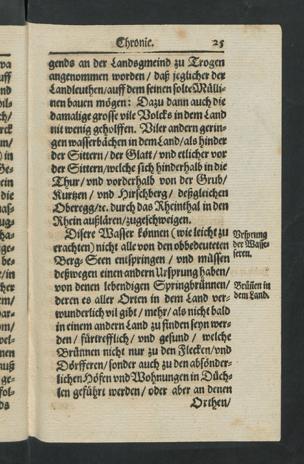 Chronic. 25
gends an der Landsgmeind zu Trogen
angenommen worden / daß jeglicher der
Landleuthen / auff dem seinen solte Mülli-
nen bauen mögen: Dazu dann auch die
damalige grosse vile Volcks in dem Land
nit wenig geholffen. Viler andern gerin-
gen wasserbächen in dem Land / als hinder
der Sittern / der Glatt / vnd etlicher vor
der Sittern / welche sich hinderhalb in die
Thur / vnd vorderhalb von der Grub /
Kurtzen / vnd Hirschberg / deßgleichen
Oberegg / ꝛc. durch das Rheinthal in den
Rhein außlären / zugeschweigen.
Disere Wasser können (wie leicht zu
erachten) nicht alle von den obbedeuteten
Berg-Seen entspringen / vnd müssen
deßwegen einen andern Vrsprung haben /
von denen lebendigen Springbrünnen /
deren es aller Orten in dem Land ver-
wunderlich vil gibt / mehr / als nicht bald
in einem andern Land zu finden seyn wer-
den / fürtrefflich / vnd gesund / welche
Brünnen nicht nur zu den Flecken / vnd
Dörfferen / sonder auch zu den absönder-
lichen Höfen vnd Wohnungen in Düch-
len geführt werden / oder aber an denen
Orthen /
Vrsprung
der Wasse-
seren.
Brünen in
dem Land.